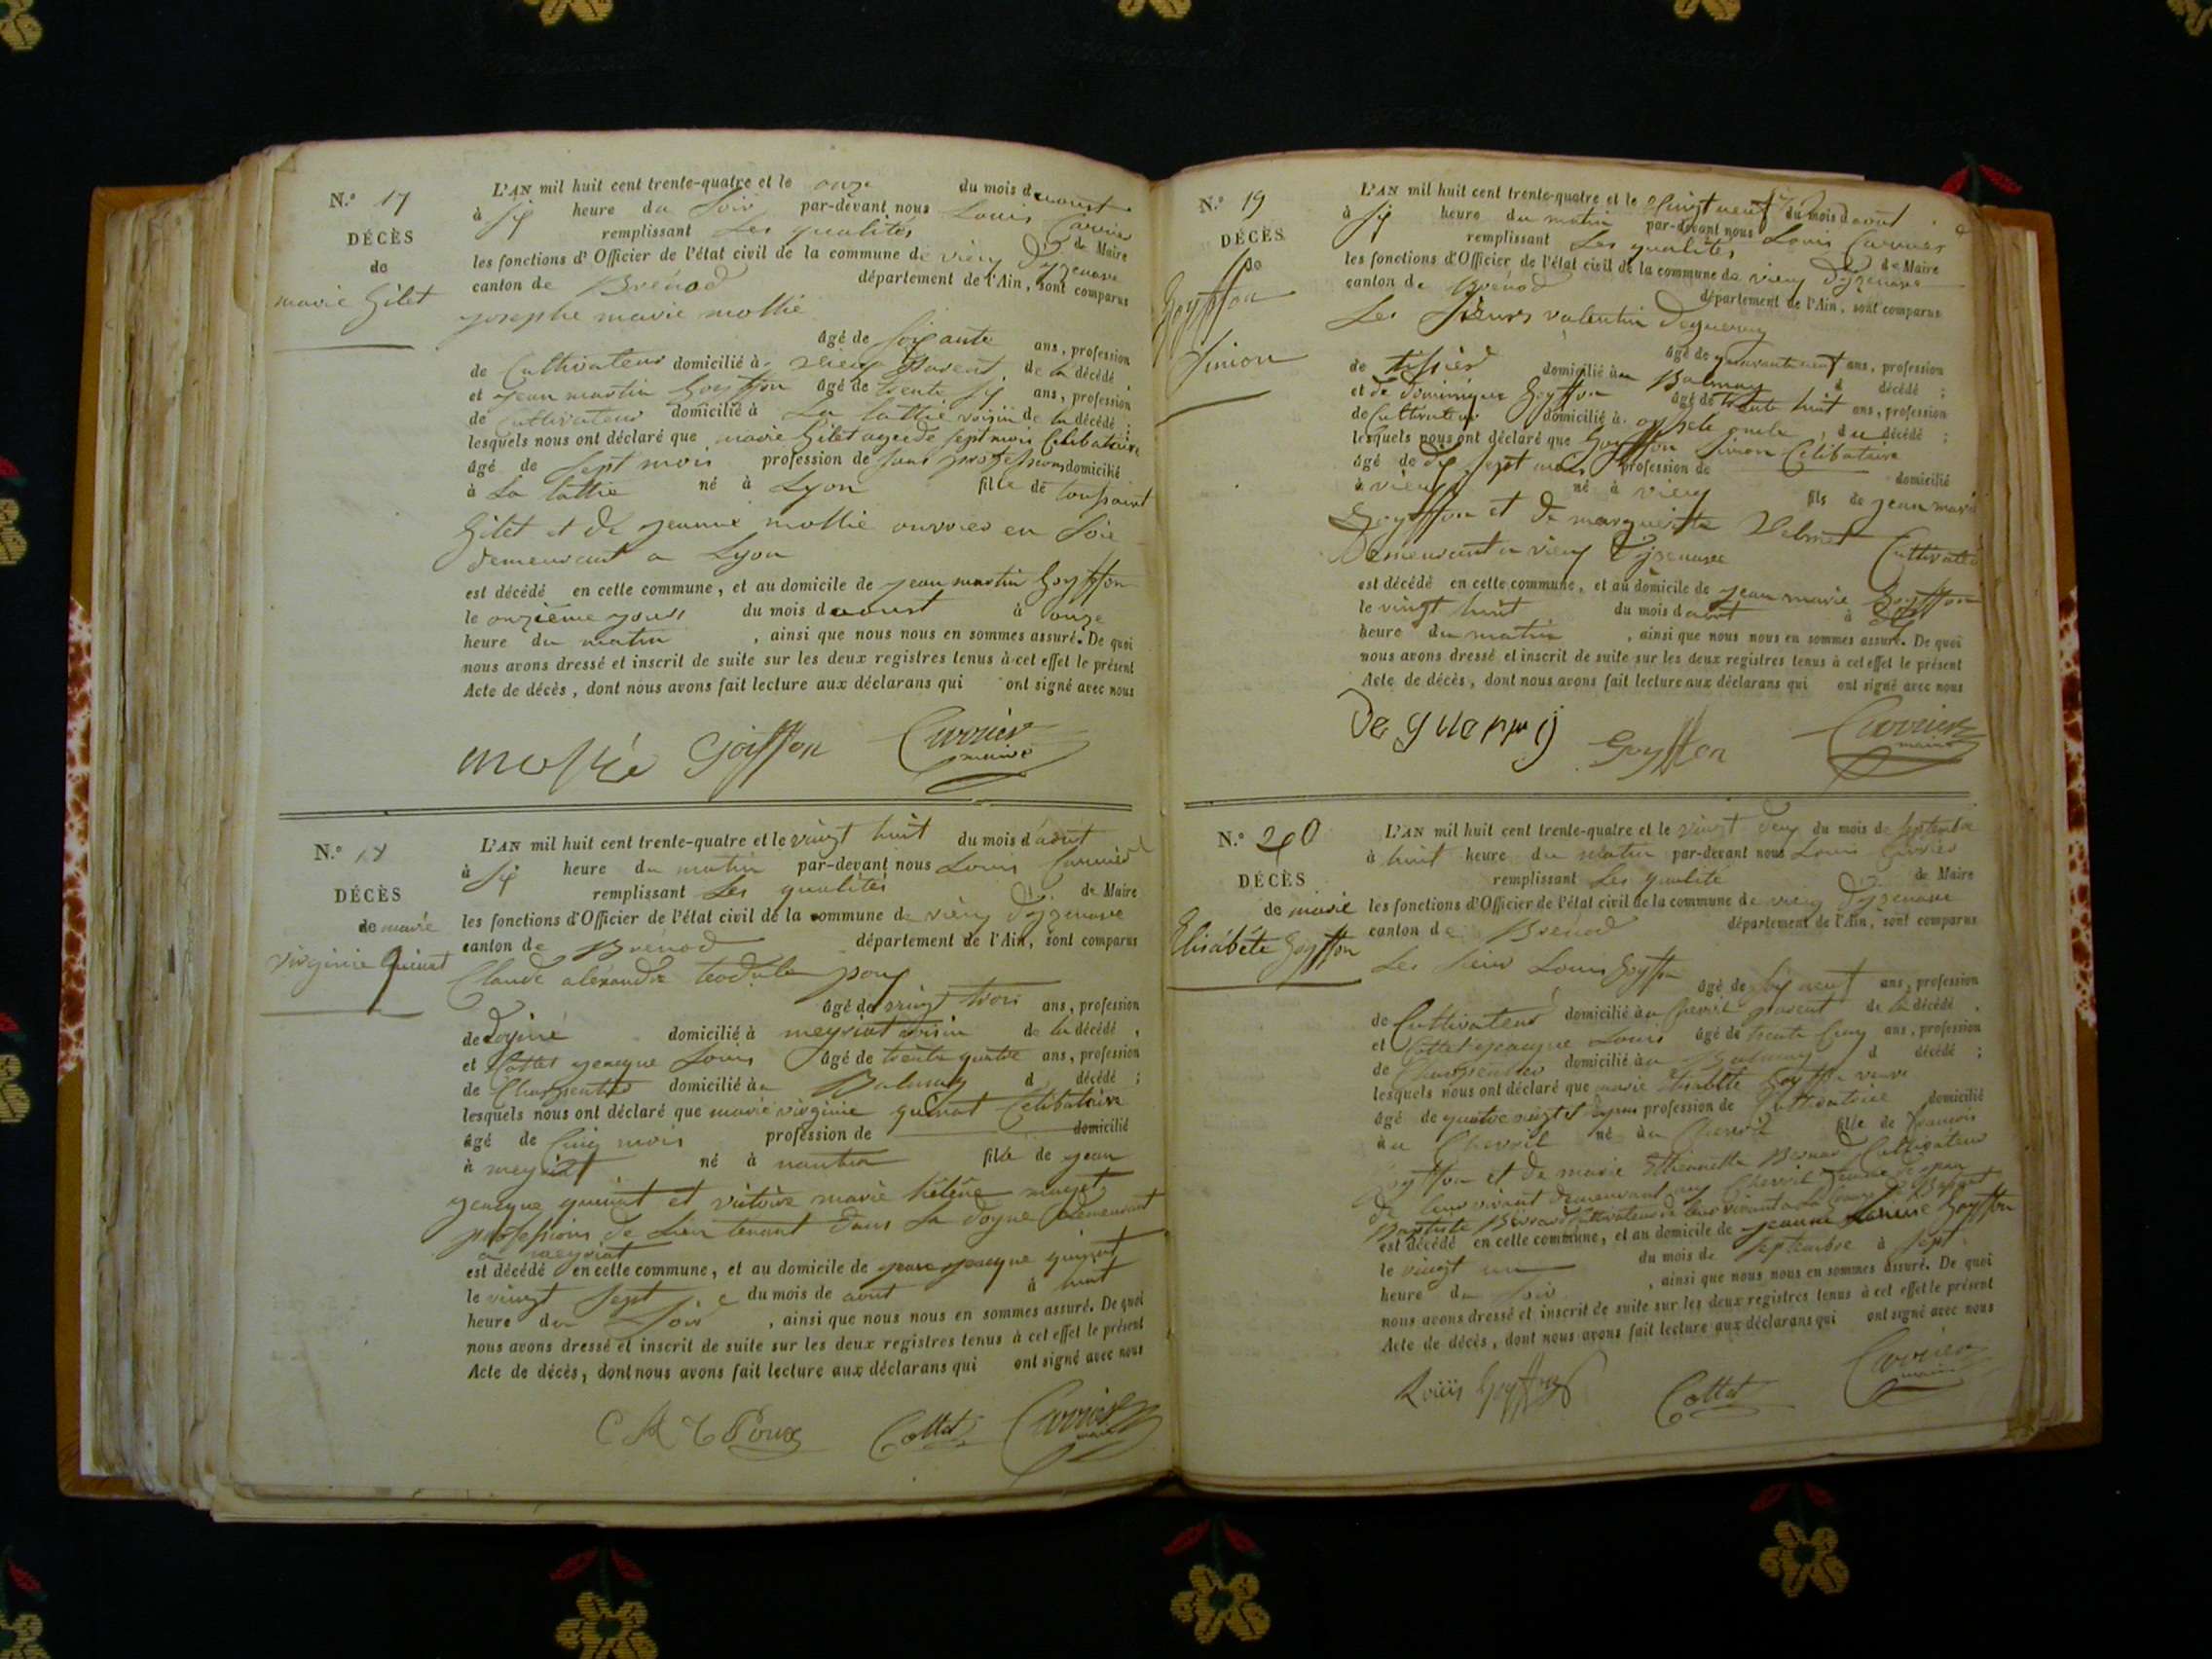 N.º 17
DÉCÈS
de
marie Gilet
L'AN mil huit cent trente-quatre et le onze du mois d'aoust
à six heure du soir par-devant nous Louis Currier
remplissant Les qualités de Maire
les fonctions d'Officier de l'état civil de la commune de vieu d'izenave
canton de Brénod département de l'Ain, sont comparus
josephe marie mollie
âgé de soixante ans, profession
de Cultivateur domicilié à vieu parent de la décédé,
et jean martin Goyffon âgé de trente six ans, profession
de Cultivateur domicilié à La lattie voisin de la décédé;
lesquels nous ont déclaré que marie Gilet agee de sept mois Celibataire
âgé de sept mois profession de sans professions domicilié
à La lattie né à Lyon fille de toussaint
Gilet et de jeanne mollie ouvrier en soie
demeurant a Lyon
est décédé en cette commune, et au domicile de jean martin Goyffon
le onzieme jour du mois d'aoust à onze
heure du matin, ainsi que nous nous en sommes assuré. De quoi
nous avons dressé et inscrit de suite sur les deux registres tenus à cet effet le présent
Acte de décès, dont nous avons fait lecture aux déclarans qui ont signé avec nous
Goiffon Currier
maire
N.º 18
DÉCÈS
de marie
virginie Guinat
L'AN mil huit cent trente-quatre et le vingt huit du mois d'aout
à six heure du matin par-devant nous Louis Currier
remplissant Les qualités de Maire
les fonctions d'Officier de l'état civil de la commune de vieu d'izenave
canton de Brénod département de l'Ain, sont comparus
Claude aléxandre
âgé de vingt trois ans, profession
de domicilié à meyriat voisin de la décédé,
et Cottet jeacque Louis âgé de trente quatre ans, profession
de Charpentier domicilié à Balmay d décédé;
lesquels nous ont déclaré que marie virginie guinat Celibataire
âgé de Cinq mois profession de domicilié
à meyriat né à nantua fille de jean
jeacque guinat et victoire marie hélène
professions de Lieu tenant dans La doyne demeurant
a meyriat
est décédé en cette commune, et au domicile de jean jeacque guinat
le vingt sept du mois de aout à huit
heure du soir, ainsi que nous nous en sommes assuré. De quoi
nous avons dressé et inscrit de suite sur les deux registres tenus à cet effet le présent
Acte de décès, dont nous avons fait lecture aux déclarans qui ont signé avec nous
Cottet Currier
maire
N.º 19
DÉCÈS
de
Goyffon
Simon
L'AN mil huit cent trente-quatre et le vingt neuf du mois d'aout
à six heure du matin par-devant nous Louis Currier
remplissant Les qualités de Maire
les fonctions d'Officier de l'état civil de la commune de vieu d'izenave
canton de Brénod département de l'Ain, sont comparus
Les sieurs valentin
âgé de quarante neuf ans, profession
de tissier domicilié au Balmay d décédé;
et de dominique Goyffon âgé de trente huit ans, profession
de Cultivateur domicilié à oncle, du décédé;
lesquels nous ont déclaré que Goyffon Simon Célibataire
âgé de dix sept mois profession de domicilié
à vieu né à vieu fils de jean marie
Goyffon et de marguerite Cultivateur
Demeurant a vieu d'izenave
est décédé en cette commune, et au domicile de jean marie Goyffon
le vingt huit du mois d'aout à
heure du matin, ainsi que nous nous en sommes assuré. De quoi
nous avons dressé et inscrit de suite sur les deux registres tenus à cet effet le présent
Acte de décès, dont nous avons fait lecture aux déclarans qui ont signé avec nous
Goyffon Currier
maire
N.º 20
DÉCÈS
de marie
Elisabéte Goyffon
L'AN mil huit cent trente-quatre et le vingt deux du mois de septembre
à huit heure du matin par-devant nous Louis Currier
remplissant Les qualité de Maire
les fonctions d'Officier de l'état civil de la commune de vieu d'izenave
canton de Brénod département de l'Ain, sont comparus
Les sieur Louis Goyffon
âgé de ans, profession
de Cultivateur domicilié au Chevril parent de la décédé,
et Cottet jeacque Louis âgé de trente Cinq ans, profession
de Charpentier domicilié au Balmay d décédé;
lesquels nous ont déclaré que marie Elisabéte Goyffon veuve
âgé de quatre vingt profession de Cultivatrice domicilié
au Chevril né au Chevril fille de francois
Goyffon et de marie Ethiennette Bernard Cultivateur
de leur vivant demeurant au Chevril
Baptiste Bernard Cultivateur de leur vivant
est décédé en cette commune, et au domicile de jeanne Goyffon
le vingt un du mois de septembre à sept
heure du soir, ainsi que nous nous en sommes assuré. De quoi
nous avons dressé et inscrit de suite sur les deux registres tenus à cet effet le présent
Acte de décès, dont nous avons fait lecture aux déclarans qui ont signé avec nous
Louis Goyffon Cottet Currier
maire